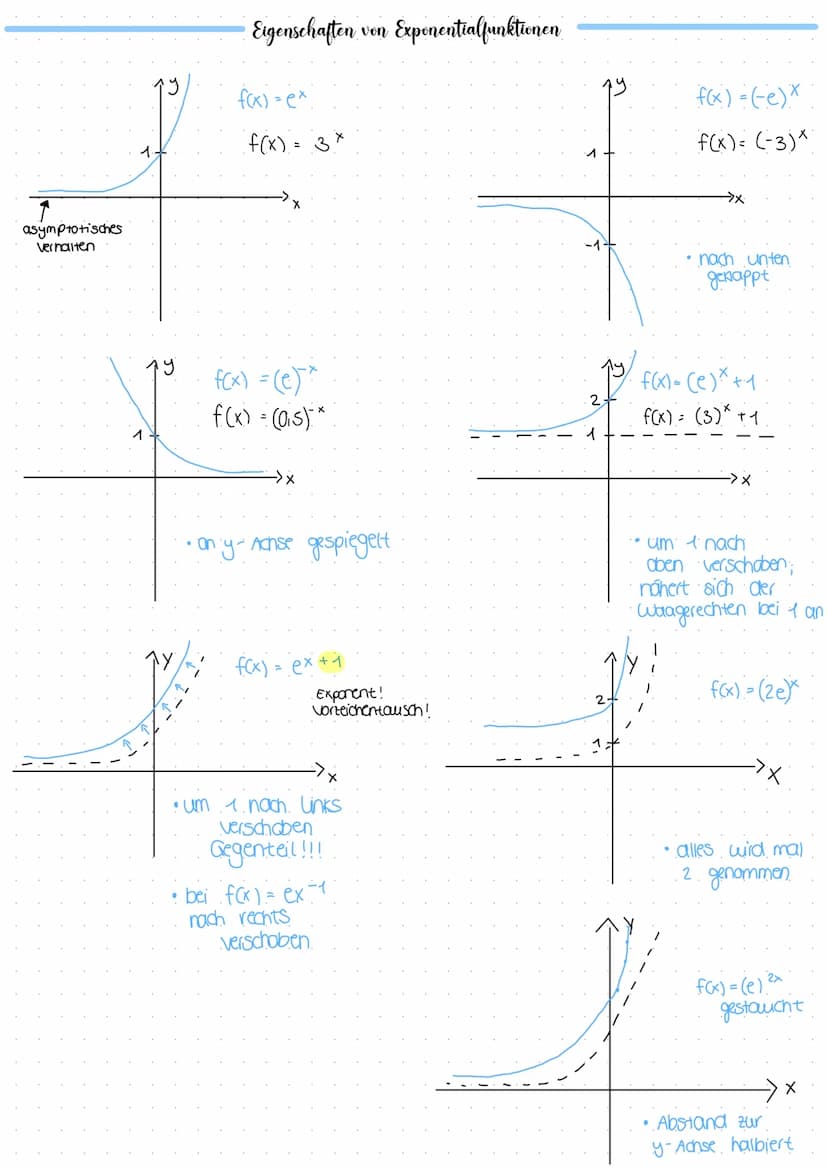 Eigenschaften von Exponentialfunktionen
y
f(x) = e^x
f(x) = 3^x
1
x
asymptotisches
Verhalten
y
f(x) = (-e)^x
f(x) = (-3)^x
1
x
-1
• nach unten
geklappt
y
f(x) = (e)^-x
f(x) = (0,5)^-x
1
x
• an y-Achse gespiegelt
y
f(x) = (e)^x + 1
f(x) = (3)^x + 1
2
1
x
• um 1 nach
oben verschoben,
nähert sich der
Waagerechten bei 1 an
y
f(x) = e^x +1
Exponent!
Vorzeichentausch!
x
• um 1 nach links
verschoben
Gegenteil!!!
• bei f(x) = ex^-1
nach rechts
verschoben
y
f(x) = (2e)^x
2
1
x
• alles wird mal
2 genommen
y
f(x) = (e)^2x
gestaucht
x
• Abstand zur
y-Achse halbiert